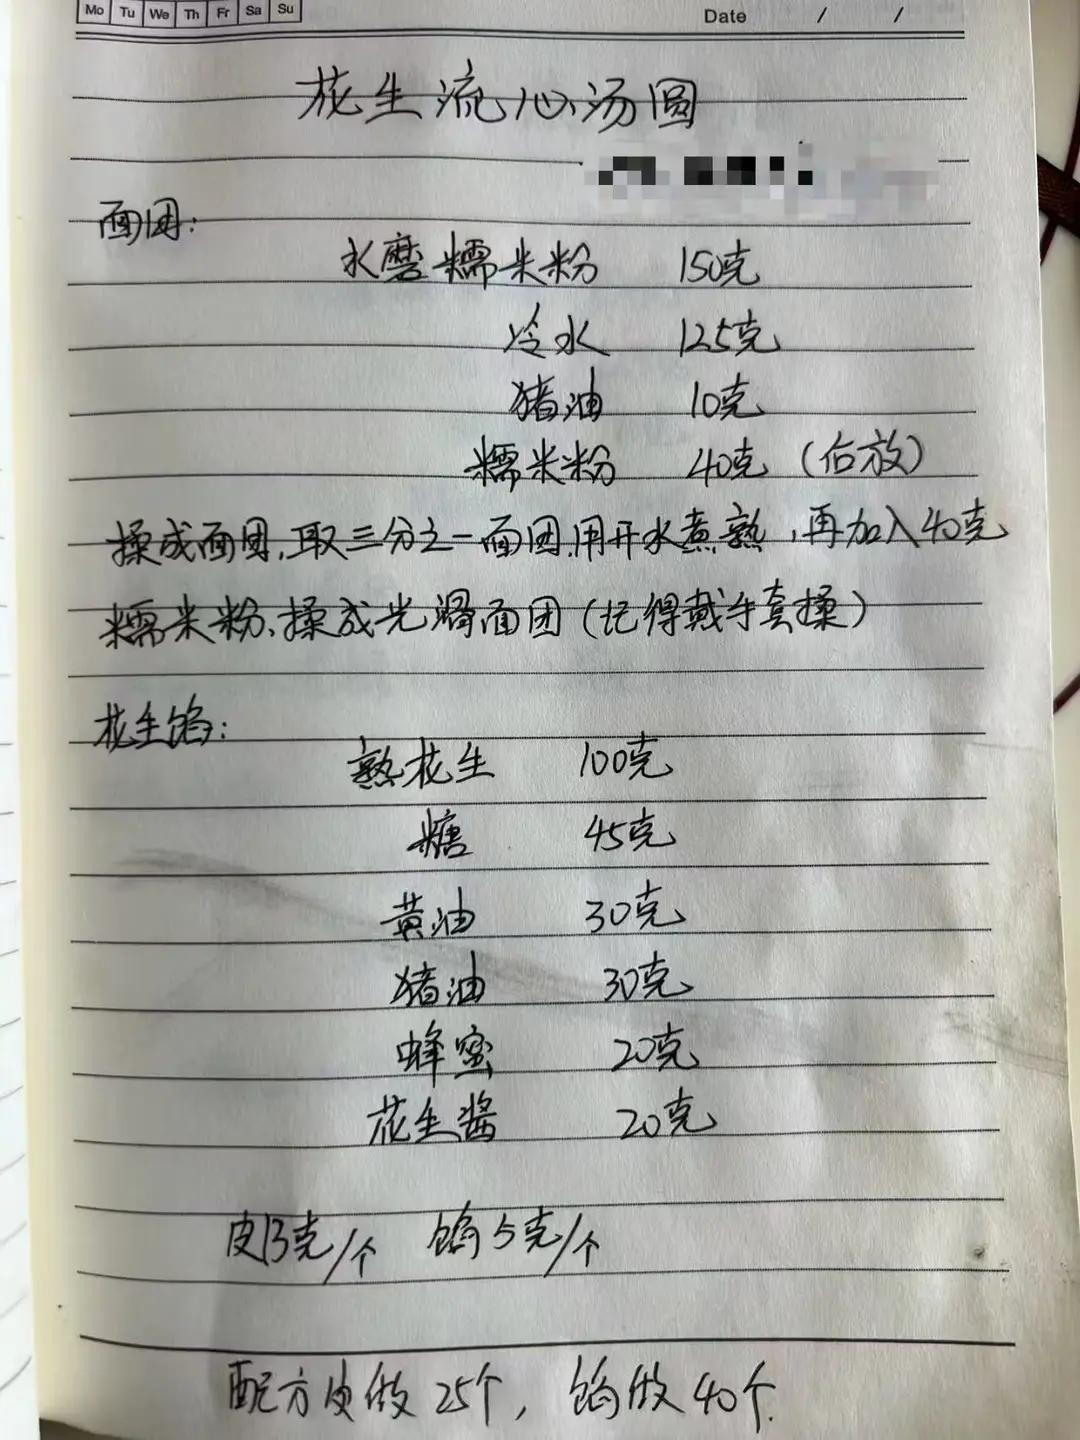 Mo Tu We Th Fr Sa Su
Date / /
花生流心汤圆
面团:
水磨糯米粉 150克
冷水 125克
猪油 10克
糯米粉 40克(后放)
揉成面团,取三分之一面团,用开水煮熟,再加入40克
糯米粉,揉成光滑面团(记得戴手套揉)
花生馅:
熟花生 100克
糖 45克
黄油 30克
猪油 30克
蜂蜜 20克
花生酱 20克
皮13克/个 馅5克/个
配方皮做25个,馅做40个.